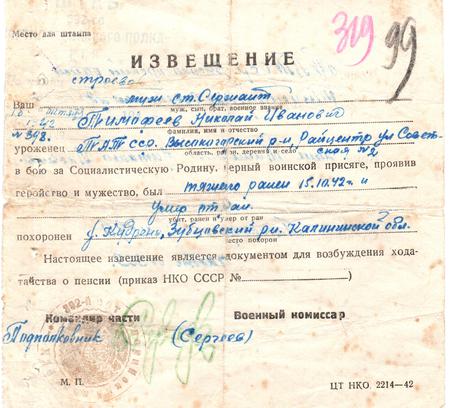 319 99
Место для штампа
ИЗВЕЩЕНИЕ
Ваш муж ст. Сержант
муж, сын, брат, военное звание
Тимофеев Николай Иванович
№ 348.
фамилия, имя и отчество
уроженец ТАТ ссо. Высокагорский р-н, Райцентр ул Совет-
область, район, деревня и село
ская №2
в бою за Социалистическую Родину, верный воинской присяге, проявив
геройство и мужество, был тяжело ранен 15.10.42 г. и
умер от ран.
убит, ранен и умер от ран
похоронен Зубцовский р-н. Калининской обл.
место похорон
Настоящее извещение является документом для возбуждения хода-
тайства о пенсии (приказ НКО СССР №)
Командир части Военный комиссар
Подполковник (Сергеев)
М. П. ЦТ НКО. 2214—42